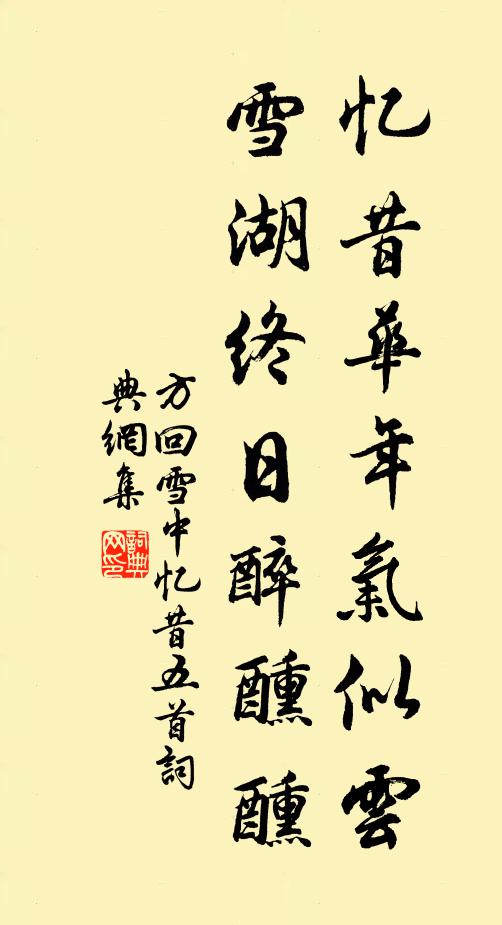 忆昔华年氣似雲
雪湖终日醉醺醺
方回雪中忆昔五首詞
典網集
詞典网印